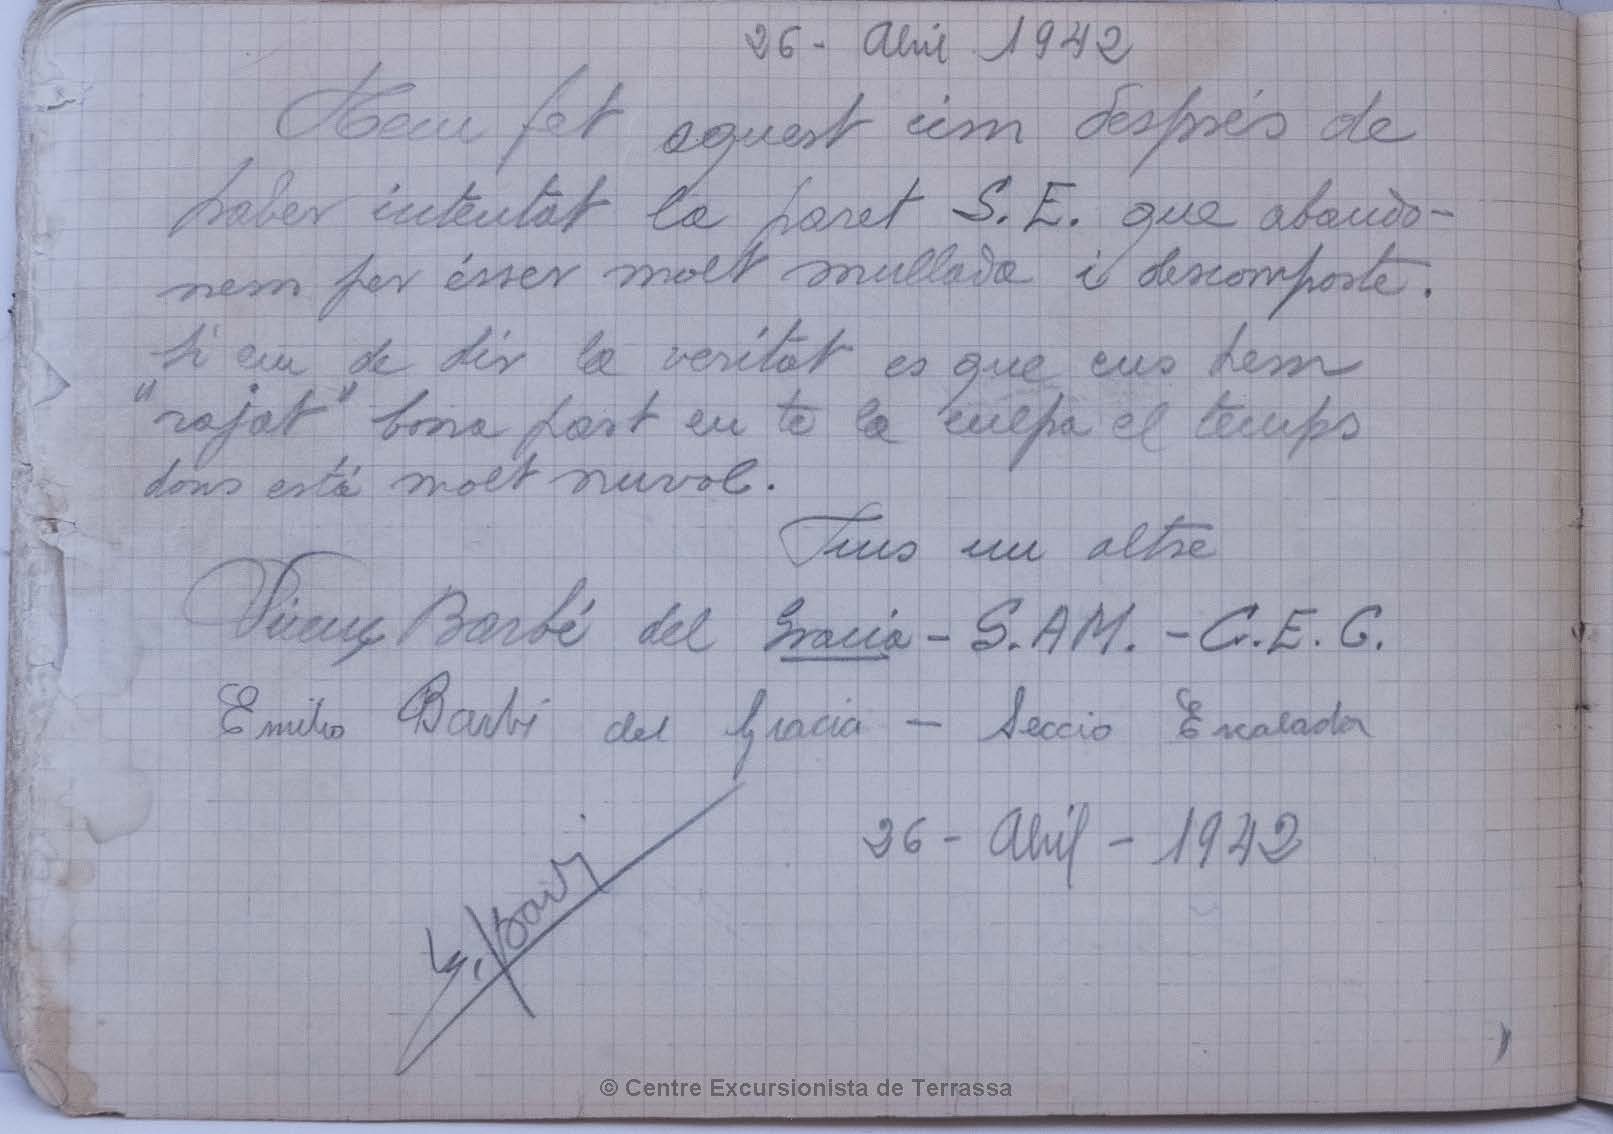 26 - Abril 1942
Hem fet aquest cim després de
haber intentat la paret S.E. que abando-
nem per ésser molt mullada i descomposte.
Si em de dir la veritat es que ens hem
"rajat" bona part en te la culpa el temps
dons está molt nuvol.
Fins un altre
Vicenç Barbé del Gracia - S.A.M. - C.E.C.
Emilio Barbé del Gracia - Seccio Escalador
26 - Abril - 1942
© Centre Excursionista de Terrassa